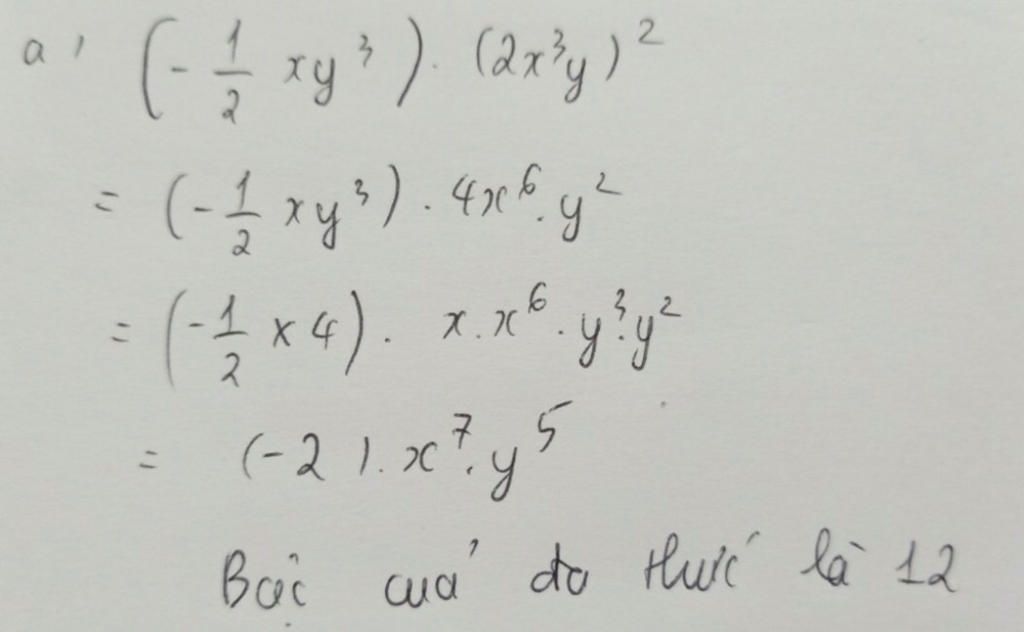 a, (-1/2 xy³). (2x³y)²
= (-1/2 xy³). 4x⁶.y²
= (-1/2 x 4). x.x⁶.y³.y²
= (-2).x⁷.y⁵
Bậc của đa thức là 12